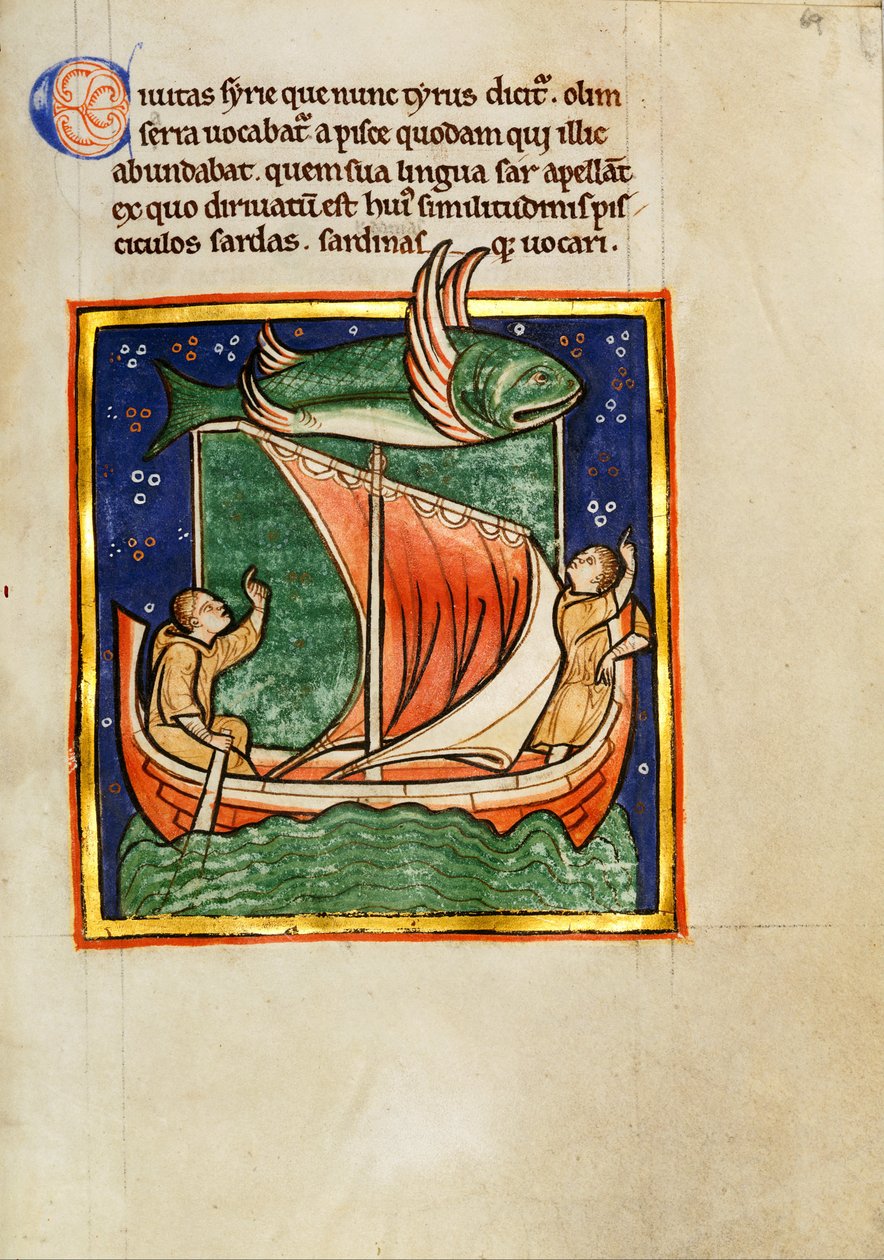 69
Ciuitas syrie que nunc tyrus dicit᷑. olim
serra uocabat᷑ a pisce quodam qui illic
abundabat. quem sua lingua sar apellāt
ex quo diriuatū est hui᷒ similitudinis pis
ciculos sardas. sardinas q; uocari.